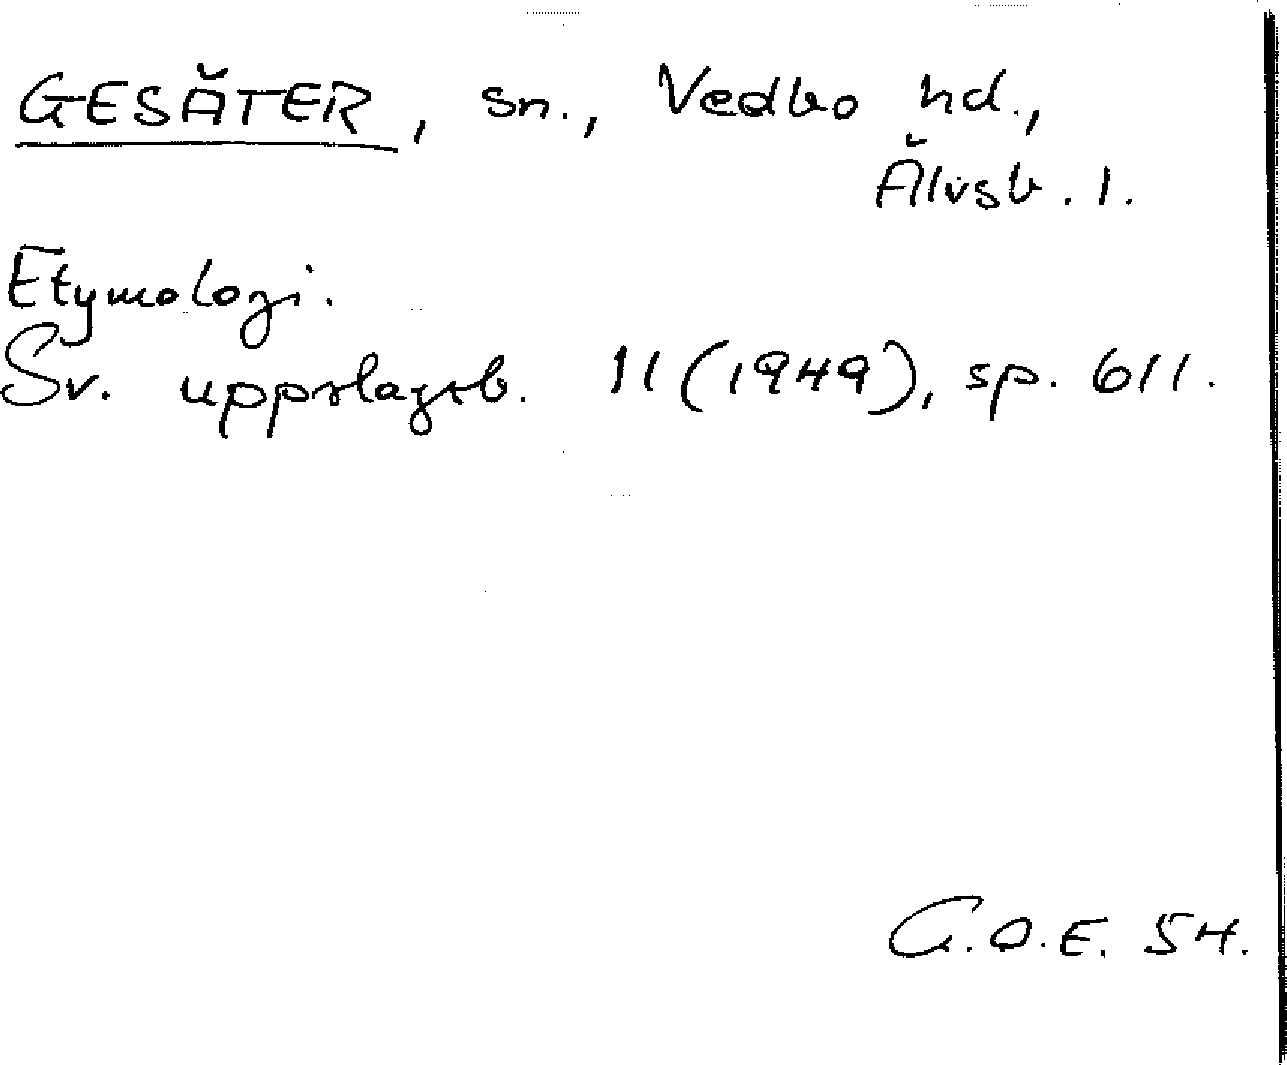 GESÄTER, sn., Vedbo hd.,
Älvsb. l.
Etymologi.
Sv. uppslagsb. 11 (1949), sp. 611.
G.O.E. 54.